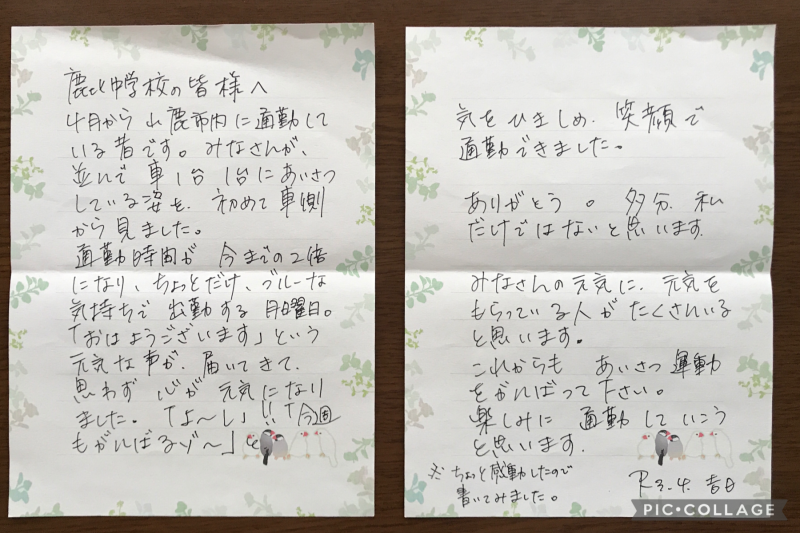 鹿北中学校の皆様へ
4月から山鹿市内に通勤して
いる者です。みなさんが、
並んで車1台1台にあいさつ
している姿を、初めて車側
から見ました。
通勤時間が今までの2倍
になり、ちょっとだけ、ブルーな
気持ちで出勤する月曜日。
「おはようございます」という
元気な声が、届いてきて、
思わず心が元気になり
ました。「よ〜し」!!「今週
もがんばるゾ〜」と
気をひきしめ、笑顔で
通勤できました。
ありがとう。多分、私
だけではないと思います。
みなさんの元気に、元気を
もらっている人がたくさんいる
と思います。
これからもあいさつ運動
をがんばって下さい。
楽しみに通勤していこう
と思います。
※ちょっと感動したので
書いてみました。
R3.4.吉日
PIC•COLLAGE